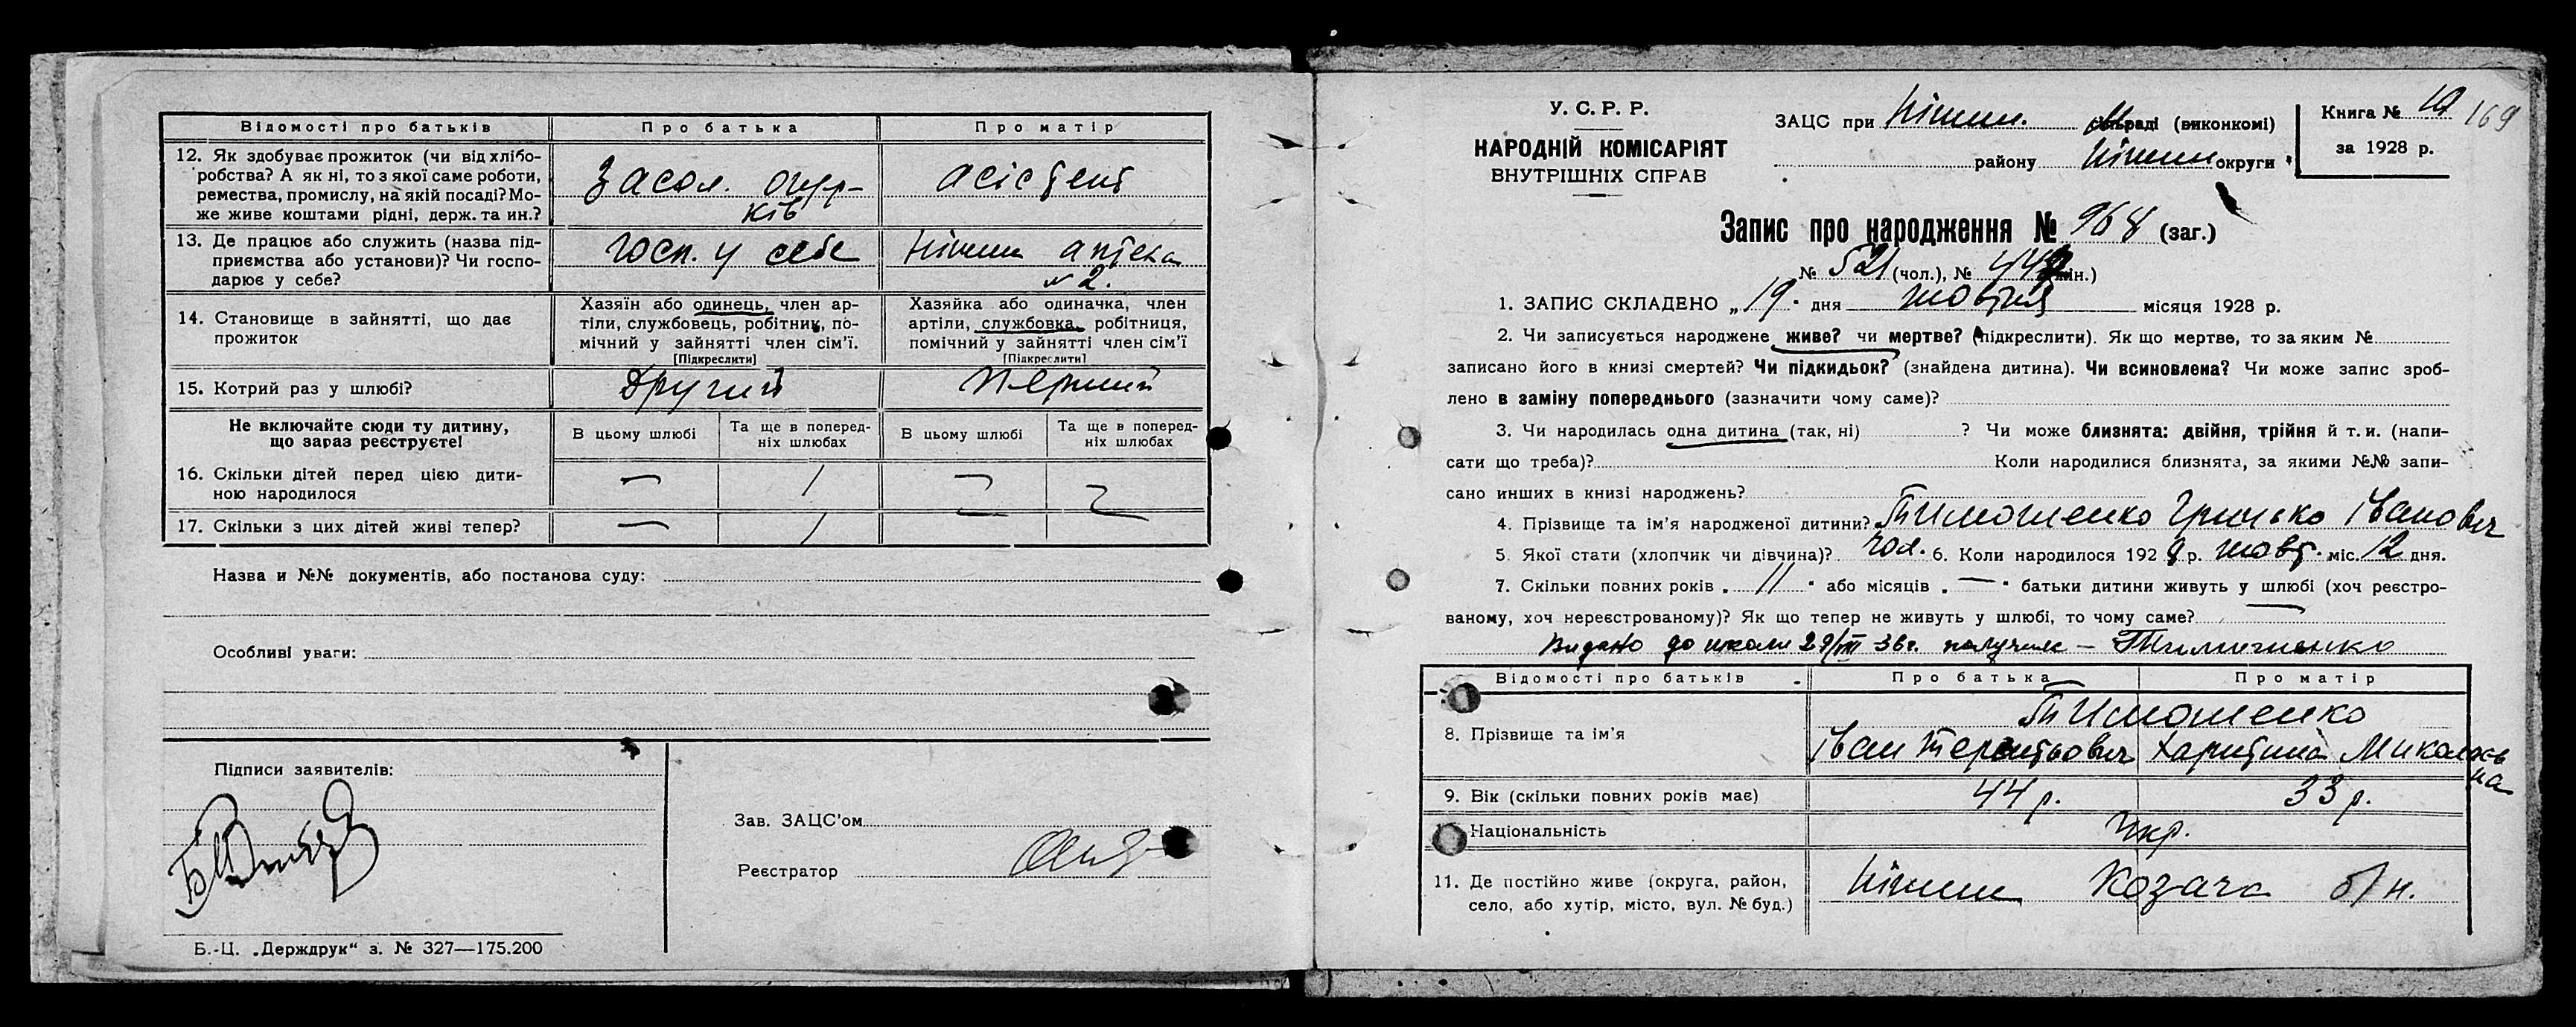 Відомості про батьків Про батька Про матір
12. Як здобуває прожиток (чи від хлібо-
робства? А як ні, то з якої саме роботи,
ремества, промислу, на якій посаді? Мо-
же живе коштами рідні, держ. та ин.?
Засол. огур-
ків
асістент
13. Де працює або служить (назва під-
приємства або установи)? Чи госпо-
дарює у себе?
госп. у себе
Ніжин аптека
№ 2.
14. Становище в зайнятті, що дає
прожиток
Хазяїн або одинець, член ар-
тіли, службовець, робітник, по-
мічний у зайнятті член сім'ї.
[Підкреслити]
Хазяйка або одиначка, член
артіли, службовка, робітниця,
помічний у зайнятті член сім'ї
[Підкреслити]
15. Котрий раз у шлюбі? Другий Перший
Не включайте сюди ту дитину,
що зараз реєструєте!
В цьому шлюбі
Та ще в поперед-
ніх шлюбах
В цьому шлюбі
Та ще в поперед-
ніх шлюбах
16. Скільки дітей перед цією дити-
ною народилося
17. Скільки з цих дітей живі тепер?
Назва и №№ документів, або постанова суду:
Особливі уваги:
Підписи заявителів:
Зав. ЗАЦС'ом
Реєстратор
Б.-Ц. „Держдрук“ з. № 327—175.200
У. С. Р. Р.
НАРОДНІЙ КОМІСАРІЯТ
ВНУТРІШНІХ СПРАВ
ЗАЦС при Ніжин. сільраді (виконкомі)
району Ніжин округи
Книга № 10
за 1928 р.
169
Запис про народження № 968 (заг.)
№ 521 (чол.), № 447 (жін.)
1. ЗАПИС СКЛАДЕНО „19“ дня жовтня місяця 1928 р.
2. Чи записується народжене живе? чи мертве? (підкреслити). Як що мертве, то за яким №
записано його в книзі смертей? Чи підкидьок? (знайдена дитина). Чи всиновлена? Чи може запис зроб-
лено в заміну попереднього (зазначити чому саме)?
3. Чи народилась одна дитина (так, ні) ? Чи може близнята: двійня, трійня й т. и. (напи-
сати що треба)? Коли народилися близнята, за якими №№ запи-
сано инших в книзі народжень?
4. Прізвище та ім'я народженої дитини? Тимошенко Грицько Іванович
5. Якої стати (хлопчик чи дівчина)? чол. 6. Коли народилося 1928 р. жовт. міс. 12 дня.
7. Скільки повних років „ 11 “ або місяців „ — “ батьки дитини живуть у шлюбі (хоч реєстро-
ваному, хоч нереєстрованому)? Як що тепер не живуть у шлюбі, то чому саме?
Видано до школи 29/III 36г. получила — Тимошенко
Відомості про батьків Про батька Про матір
8. Прізвище та ім'я
Тимошенко
Іван Терентьович Харитина Миколаєв-
на
9. Вік (скільки повних років має) 44 р. 33 р.
Національність Укр.
11. Де постійно живе (округа, район,
село, або хутір, місто, вул. № буд.)
Ніжин Козача б/н.